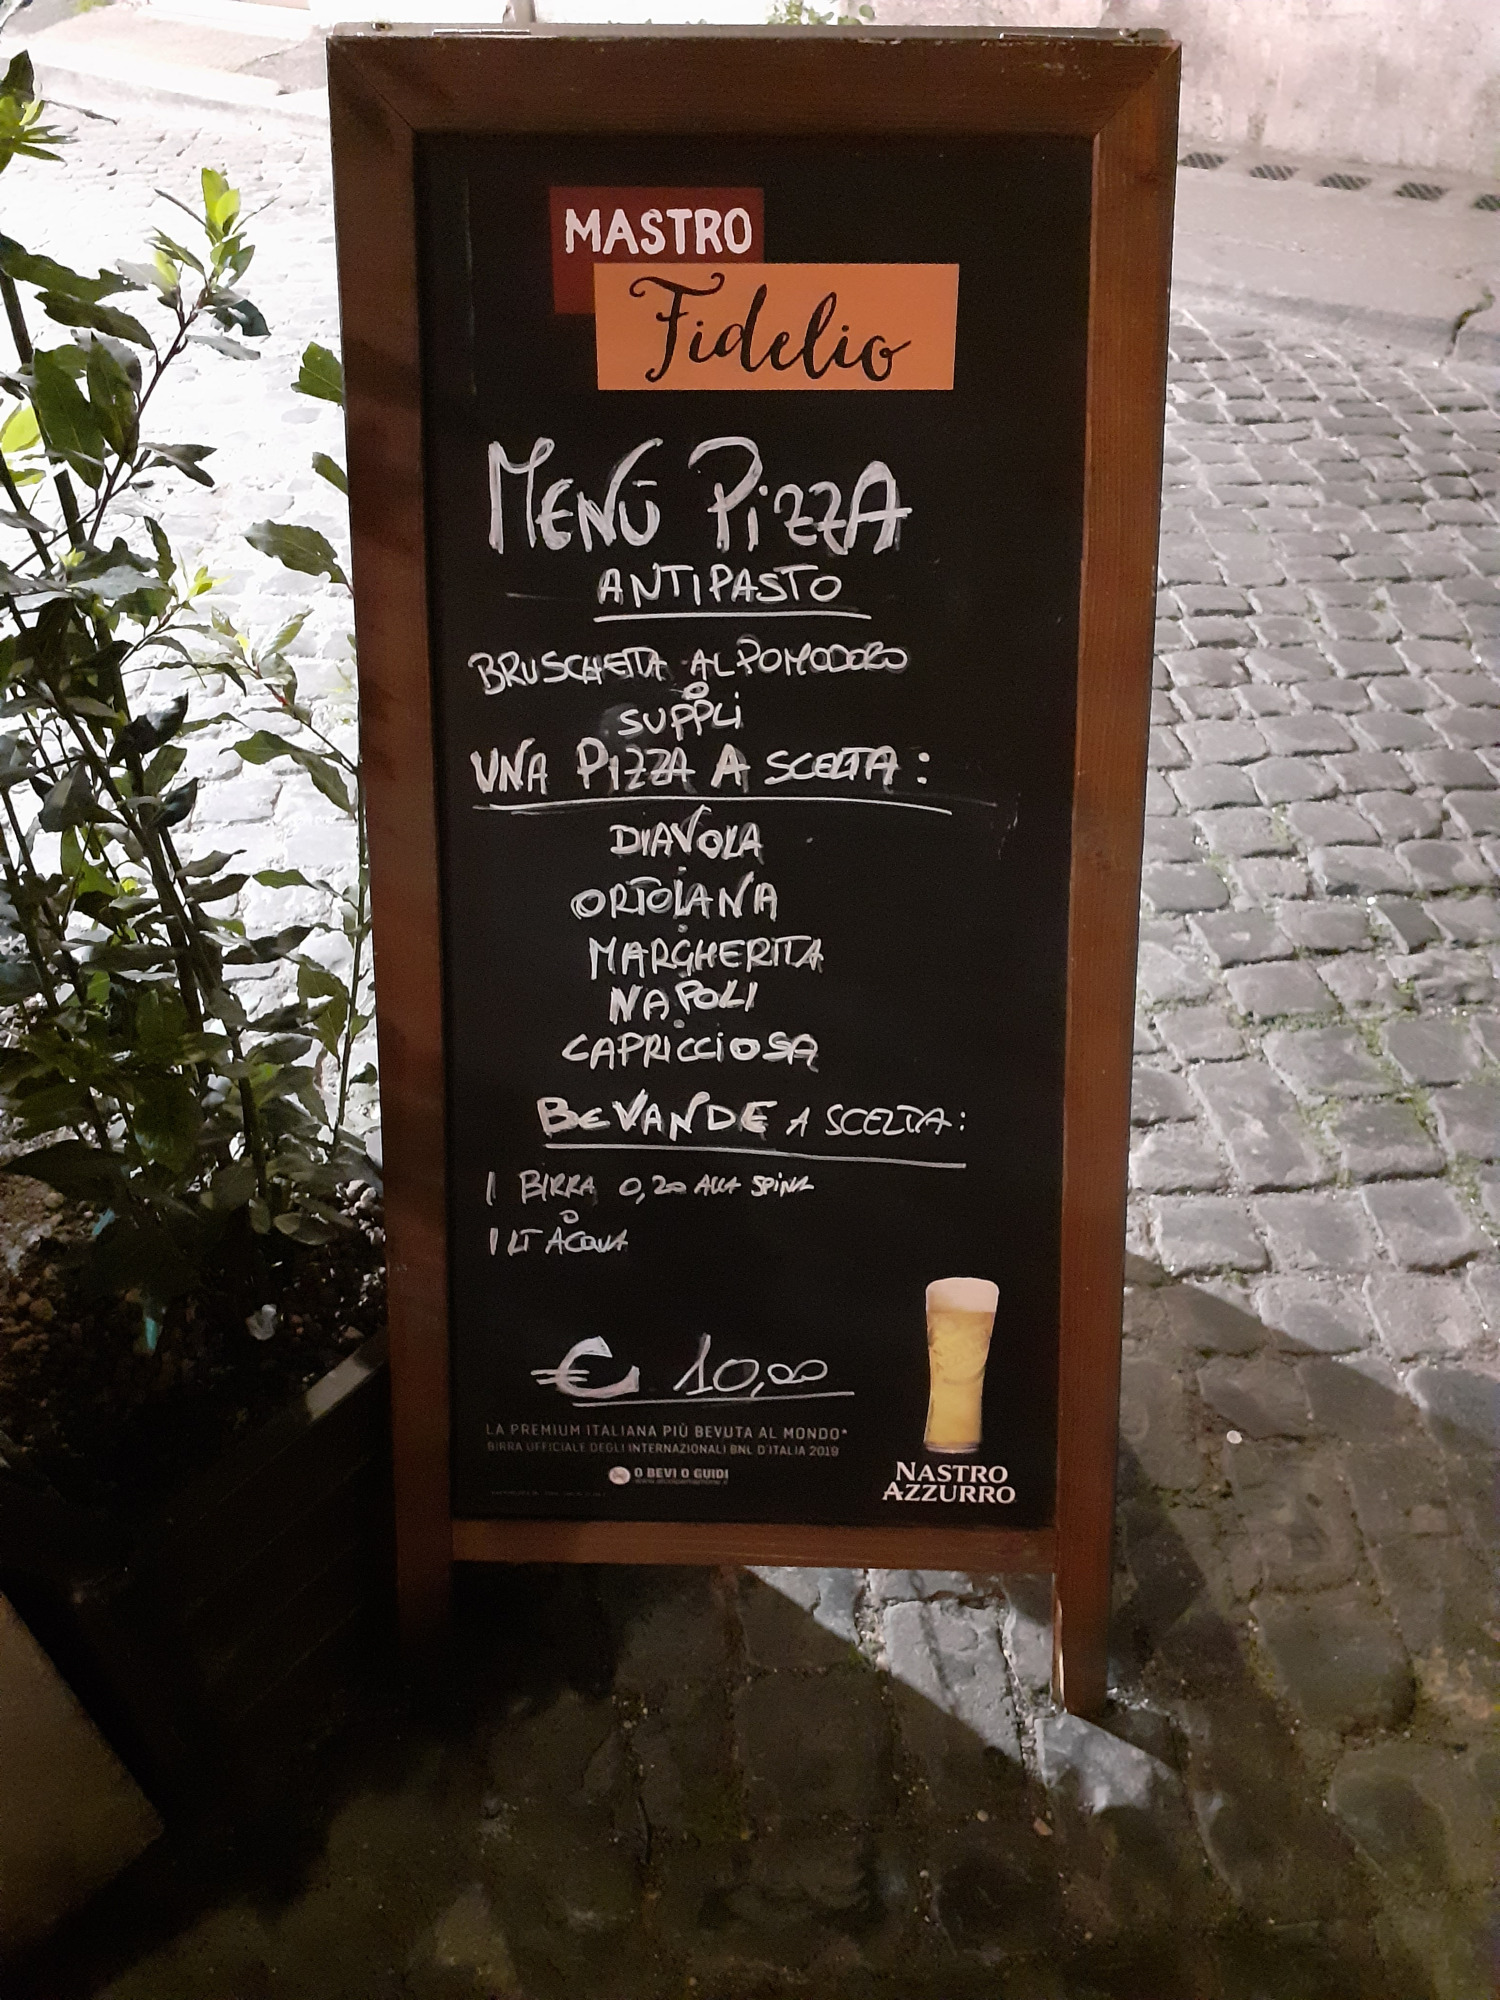 MASTRO
Fidelio
MENÙ PIZZA
ANTIPASTO
BRUSCHETTA AL POMODORO
O
SUPPLI
UNA PIZZA A SCELTA:
DIAVOLA
ORTOLANA
MARGHERITA
NAPOLI
CAPRICCIOSA
BEVANDE A SCELTA:
1 BIRRA 0,20 ALLA SPINA
O
1 LT ACQUA
€ 10,00
LA PREMIUM ITALIANA PIÙ BEVUTA AL MONDO*
BIRRA UFFICIALE DEGLI INTERNAZIONALI BNL D'ITALIA 2019
O BEVI O GUIDI
NASTRO
AZZURRO